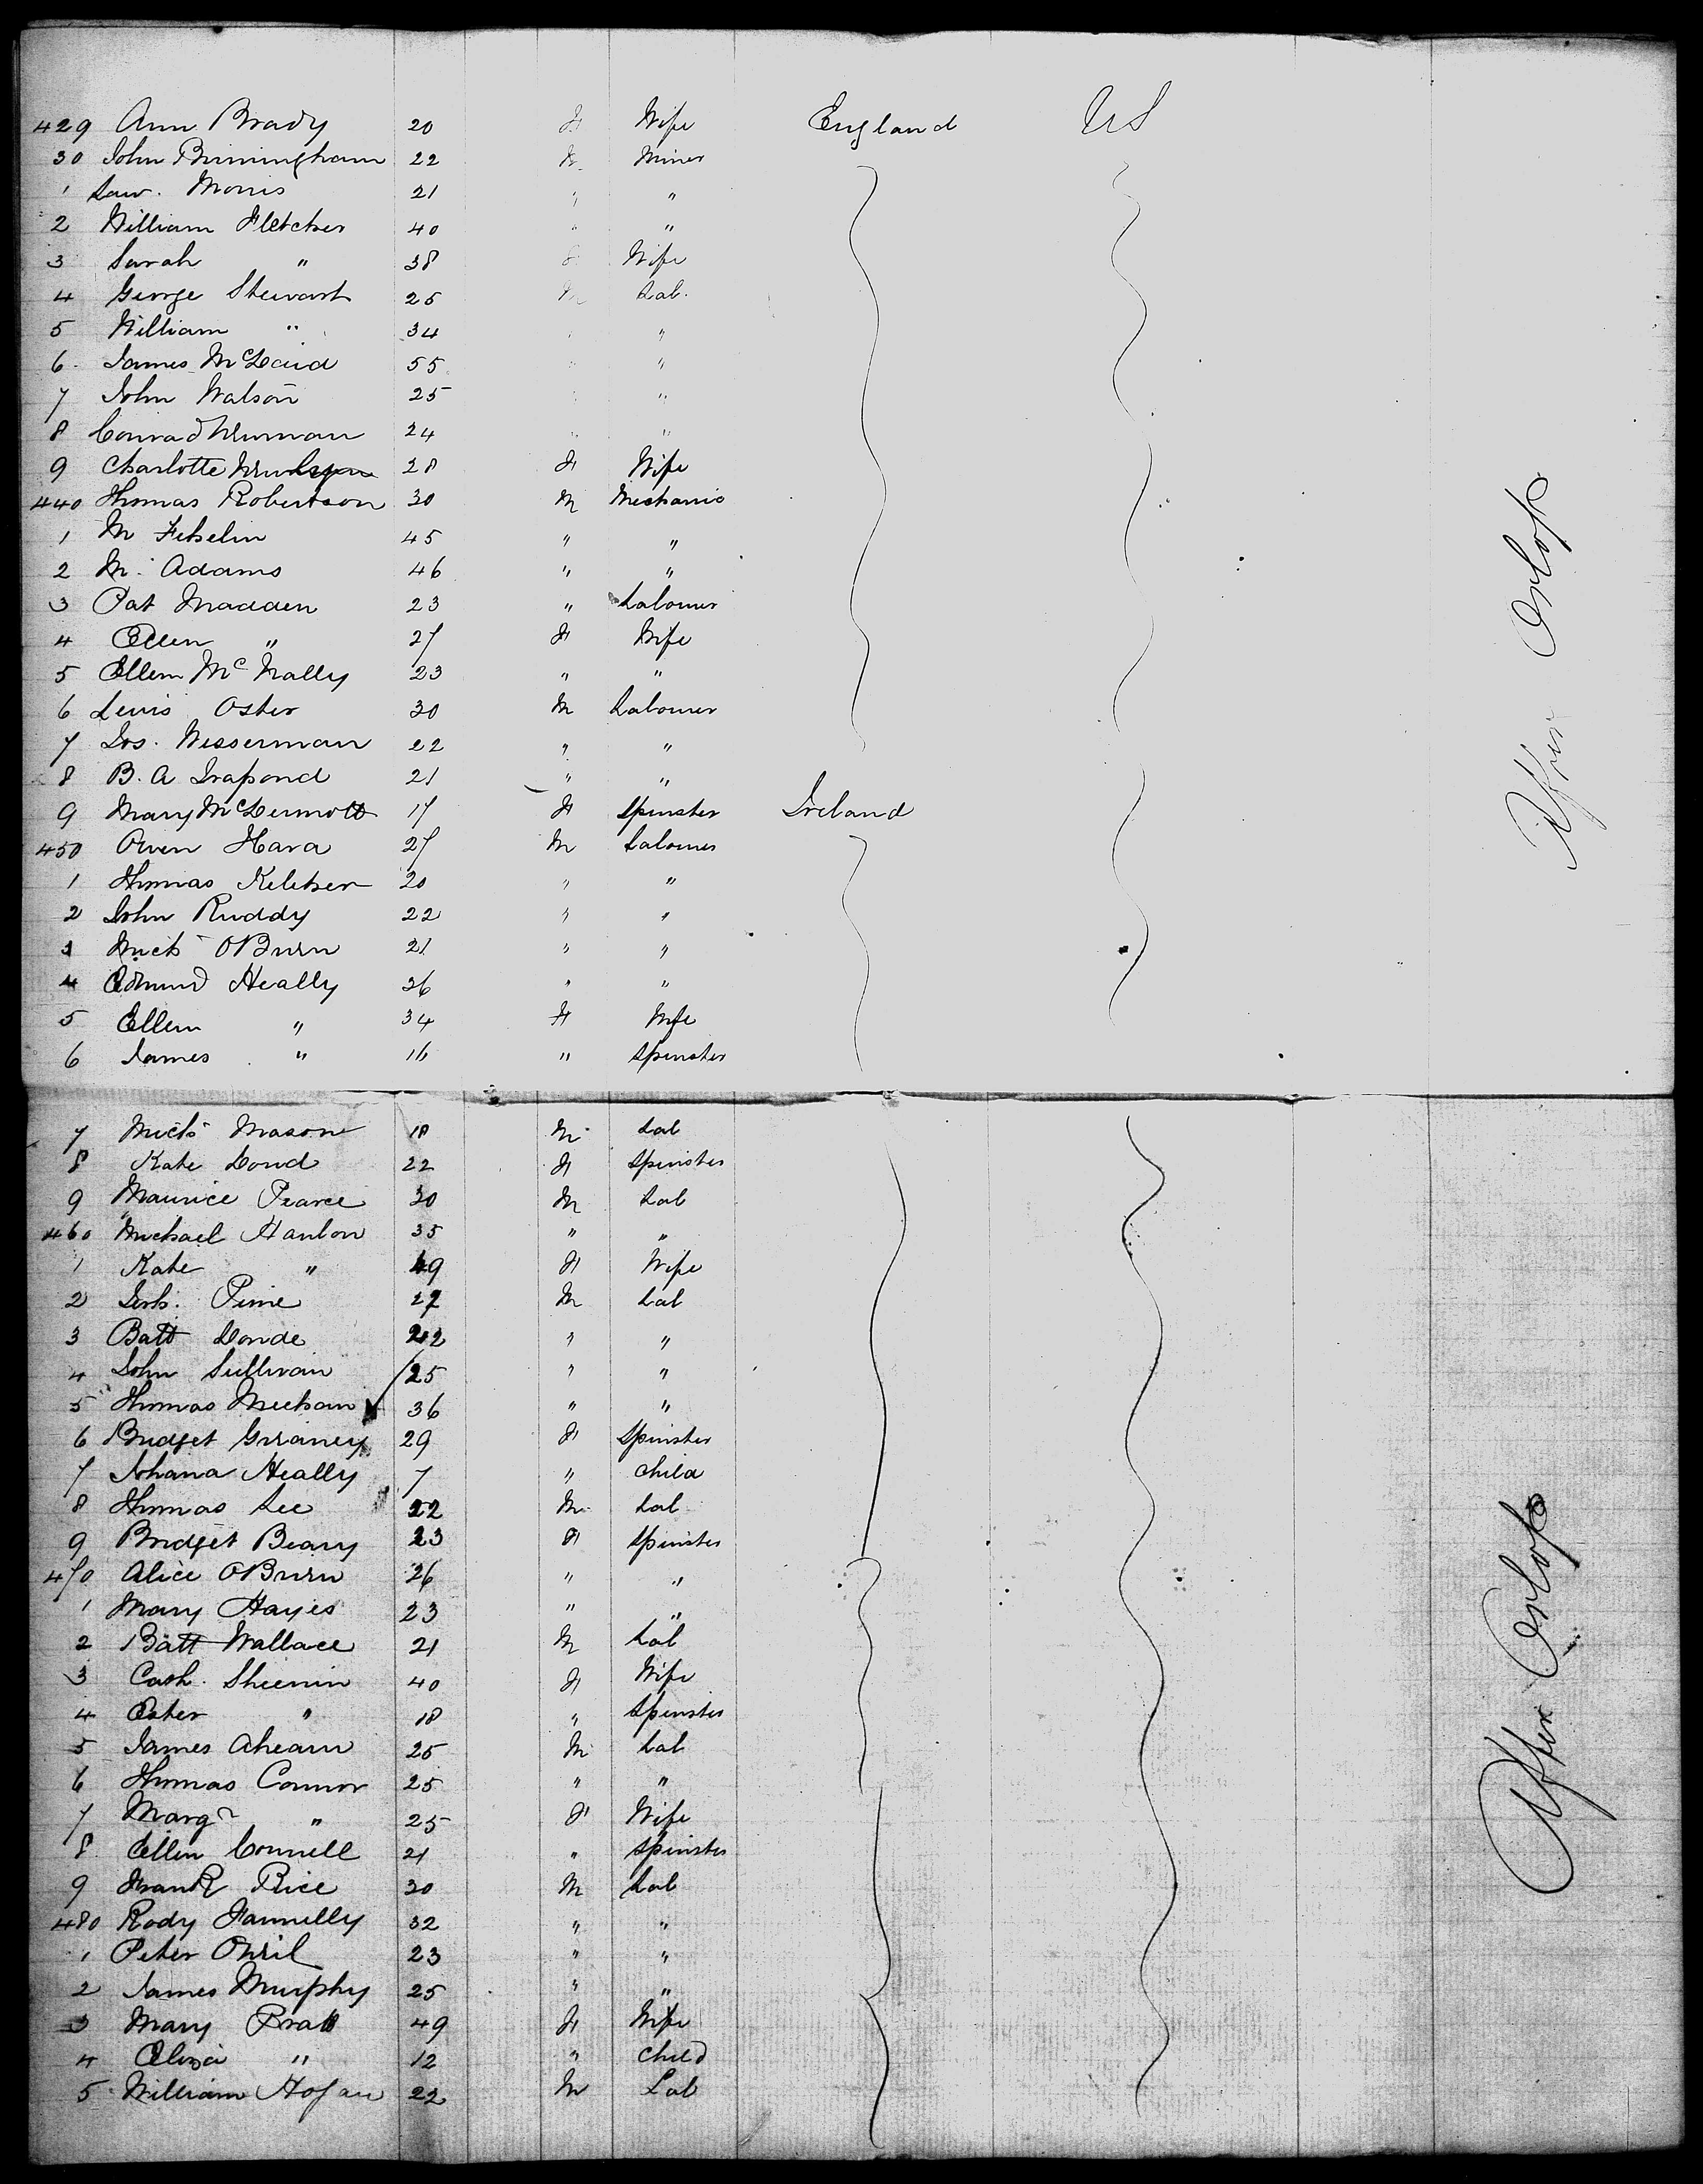 429 Ann Brady 20 F Wife England US
30 John Birmingham 22 M Miner
1 Law. Morris 21 " "
2 William Fletcher 40 " "
3 Sarah " 38 F Wife
4 George Stewart 25 M Lab.
5 William " 34 " "
6 James McLaud 55 " "
7 John Watson 25 " "
8 Conrad Neuman 24 " "
9 Charlotte 28 F Wife
440 Thomas Robertson 30 M Mechanic
1 M 45 " "
2 M. Adams 46 " "
3 Pat Madden 23 " Labourer
4 Ellen " 27 F Wife
5 Ellen McNally 23 " "
6 Lewis Oster 30 M Labourer
7 Jos. Wisserman 22 " "
8 B. A 21 " "
9 Mary McDermott 17 F Spinster Ireland
450 Owen Hara 27 M Labourer
1 Thomas Keleher 20 " "
2 John Ruddy 22 " "
3 Mich OBrien 21 " "
4 Edmund Heally 36 " "
5 Ellen " 34 F Wife
6 James " 16 " Spinster
7 Mich Mason 18 M Lab
8 Kate Doud 22 F Spinster
9 Maurice Pearce 30 M Lab
460 Michael Hanlon 35 " "
1 Kate " 49 F Wife
2 Pirie 27 M Lab
3 Batt Donde 22 " "
4 John Sullivan 25 " "
5 Thomas Meehan 36 " "
6 Bridget Graney 29 F Spinster
7 Johana Heally 7 " Child
8 Thomas Lee 22 M Lab
9 Bridget Beary 23 F Spinster
470 Alice OBrien 26 " "
1 Mary Hayes 23 " "
2 Batt Wallace 21 M Lab
3 Cath. Sheenin 40 F Wife
4 Ester " 18 " Spinster
5 James Ahearn 25 M Lab
6 Thomas Connor 25 " "
7 Margt " 25 F Wife
8 Ellen Connell 21 " Spinster
9 Frank Rice 30 M Lab
480 Rody Fannelly 32 " "
1 Peter ONeil 23 " "
2 James Murphy 25 " "
3 Mary Pratt 49 F Wife
4 Eliza " 12 " Child
5 William Hogan 22 M Lab
After Orlop
After Orlop